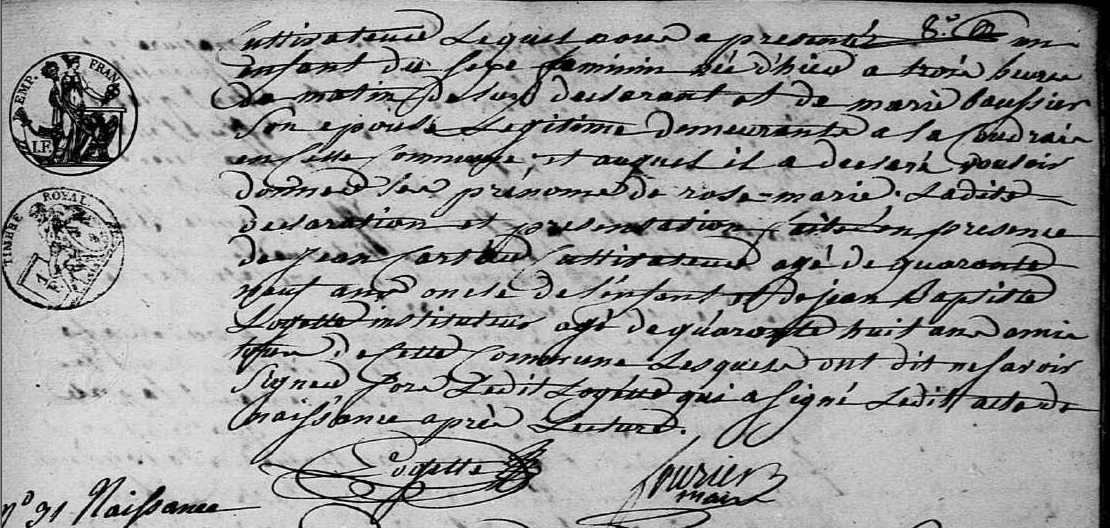 EMP. FRAN
TIMBRE ROYAL
Cultivateur Lequel nous a presenté un
enfant du sexe feminin né d'hier a trois heure
du matin de luy declarant et de marie Caussier
Son epouse Legitime demeurante a la Coudraie
en cette Commune et auquel il a declaré vouloir
donner les prénoms de rose=marie. Ladite
declaration et presentation faite en presence
de Jean Cultivateur agé de quarante
neuf ans oncle de l'enfant et de jean Baptiste
Logette instituteur agé de quarante huit ans amis
de cette Commune Lesquels ont dit ne savoir
Signer fors Ledit Logette qui a Signé Ledit acte de
naissance après Lecture.
Logette
fourier
maire
n° 91 Naissance